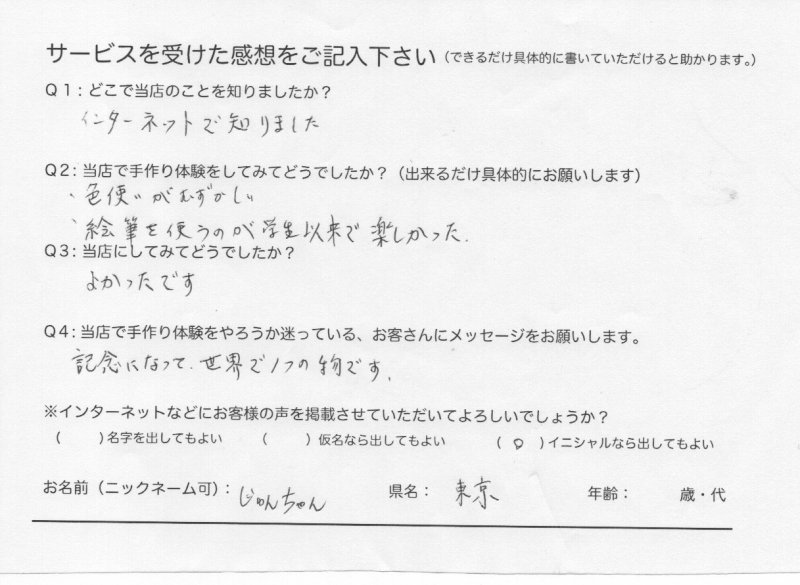 サービスを受けた感想をご記入下さい（できるだけ具体的に書いていただけると助かります。）
Q1：どこで当店のことを知りましたか？
インターネットで知りました
Q2：当店で手作り体験をしてみてどうでしたか？（出来るだけ具体的にお願いします）
・色使いがむずかしい
・絵筆を使うのが学生以来で楽しかった.
Q3：当店にしてみてどうでしたか？
よかったです
Q4：当店で手作り体験をやろうか迷っている、お客さんにメッセージをお願いします。
記念になって、世界で1つの物です.
※インターネットなどにお客様の声を掲載させていただいてよろしいでしょうか？
（　　）名字を出してもよい　（　　）仮名なら出してもよい　（ ○ ）イニシャルなら出してもよい
お名前（ニックネーム可）：じゅんちゃん　県名：東京　年齢：　歳・代